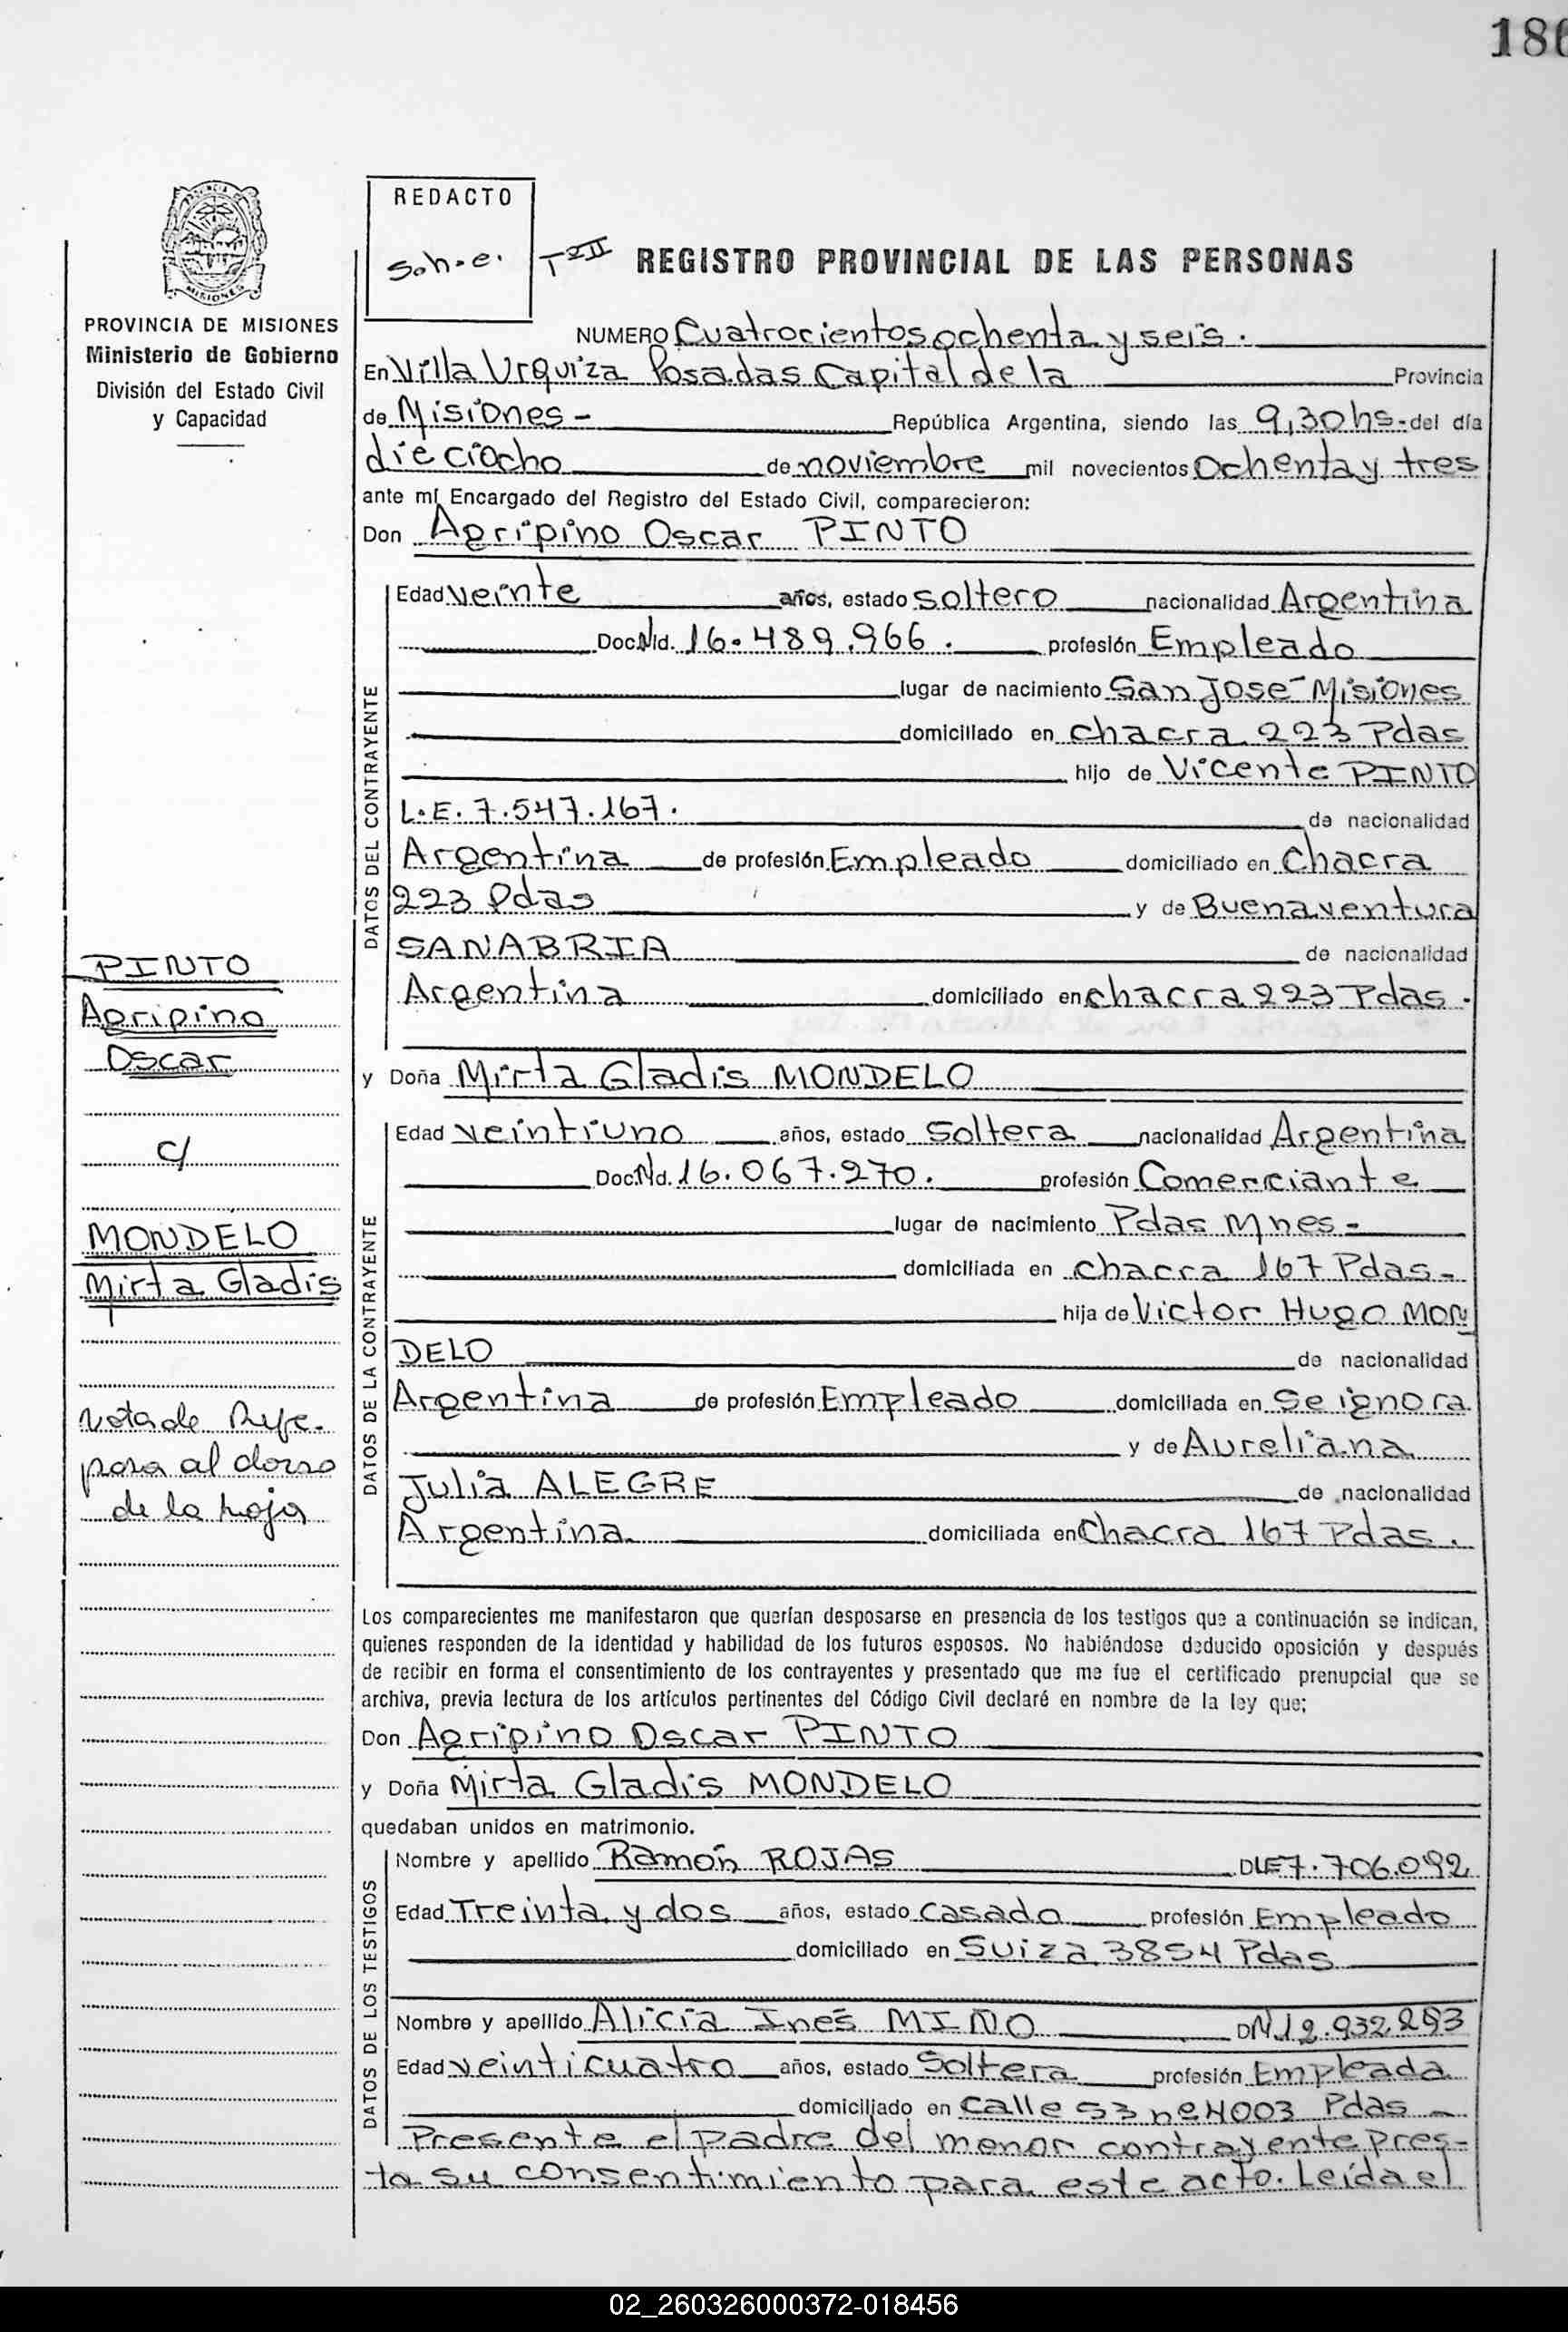 186
REDACTO
S.h.e.
T=II
REGISTRO PROVINCIAL DE LAS PERSONAS
PROVINCIA DE MISIONES
Ministerio de Gobierno
División del Estado Civil
y Capacidad
NUMERO Cuatrocientos ochenta y seis.
En Villa Urquiza Posadas Capital de la Provincia
de Misiones - República Argentina, siendo las 9,30 hs- del día
dieciocho de noviembre mil novecientos Ochenta y tres
ante mí Encargado del Registro del Estado Civil, comparecieron:
Don Agripino Oscar PINTO
DATOS DEL CONTRAYENTE
Edad veinte años, estado soltero nacionalidad Argentina
Doc.NId. 16.489.966. profesión Empleado
lugar de nacimiento San José Misiones
domiciliado en chacra 223 Pdas
hijo de Vicente PINTO
L.E. 7.547.167. de nacionalidad
Argentina de profesión Empleado domiciliado en Chacra
223 Pdas y de Buenaventura
SANABRIA de nacionalidad
Argentina domiciliado en chacra 223 Pdas.
y Doña Mirta Gladis MONDELO
DATOS DE LA CONTRAYENTE
Edad veintiuno años, estado soltera nacionalidad Argentina
Doc.Nd. 16.067.270. profesión Comerciante
lugar de nacimiento Pdas Mnes-
domiciliada en chacra 167 Pdas-
hija de Victor Hugo MON
DELO de nacionalidad
Argentina de profesión Empleado domiciliada en Se ignora
y de Aureliana
Julia ALEGRE de nacionalidad
Argentina domiciliada en Chacra 167 Pdas.
PINTO
Agripino
Oscar
c/
MONDELO
Mirta Gladis
Nota de Refe-
para al dorso
de la hoja
Los comparecientes me manifestaron que querían desposarse en presencia de los testigos que a continuación se indican,
quienes responden de la identidad y habilidad de los futuros esposos. No habiéndose deducido oposición y después
de recibir en forma el consentimiento de los contrayentes y presentado que me fue el certificado prenupcial que se
archiva, previa lectura de los artículos pertinentes del Código Civil declaré en nombre de la ley que;
Don Agripino Oscar PINTO
y Doña Mirta Gladis MONDELO
quedaban unidos en matrimonio.
DATOS DE LOS TESTIGOS
Nombre y apellido Ramón ROJAS DLE 7.706.092
Edad Treinta y dos años, estado casado profesión Empleado
domiciliado en Suiza 3854 Pdas
Nombre y apellido Alicia Inés MIÑO DN 12.932.293
Edad veinticuatro años, estado Soltera profesión Empleada
domiciliado en calle 53 nº 4003 Pdas-
Presente el padre del menor contrayente pres-
ta su consentimiento para este acto. Leída el
02_260326000372-018456